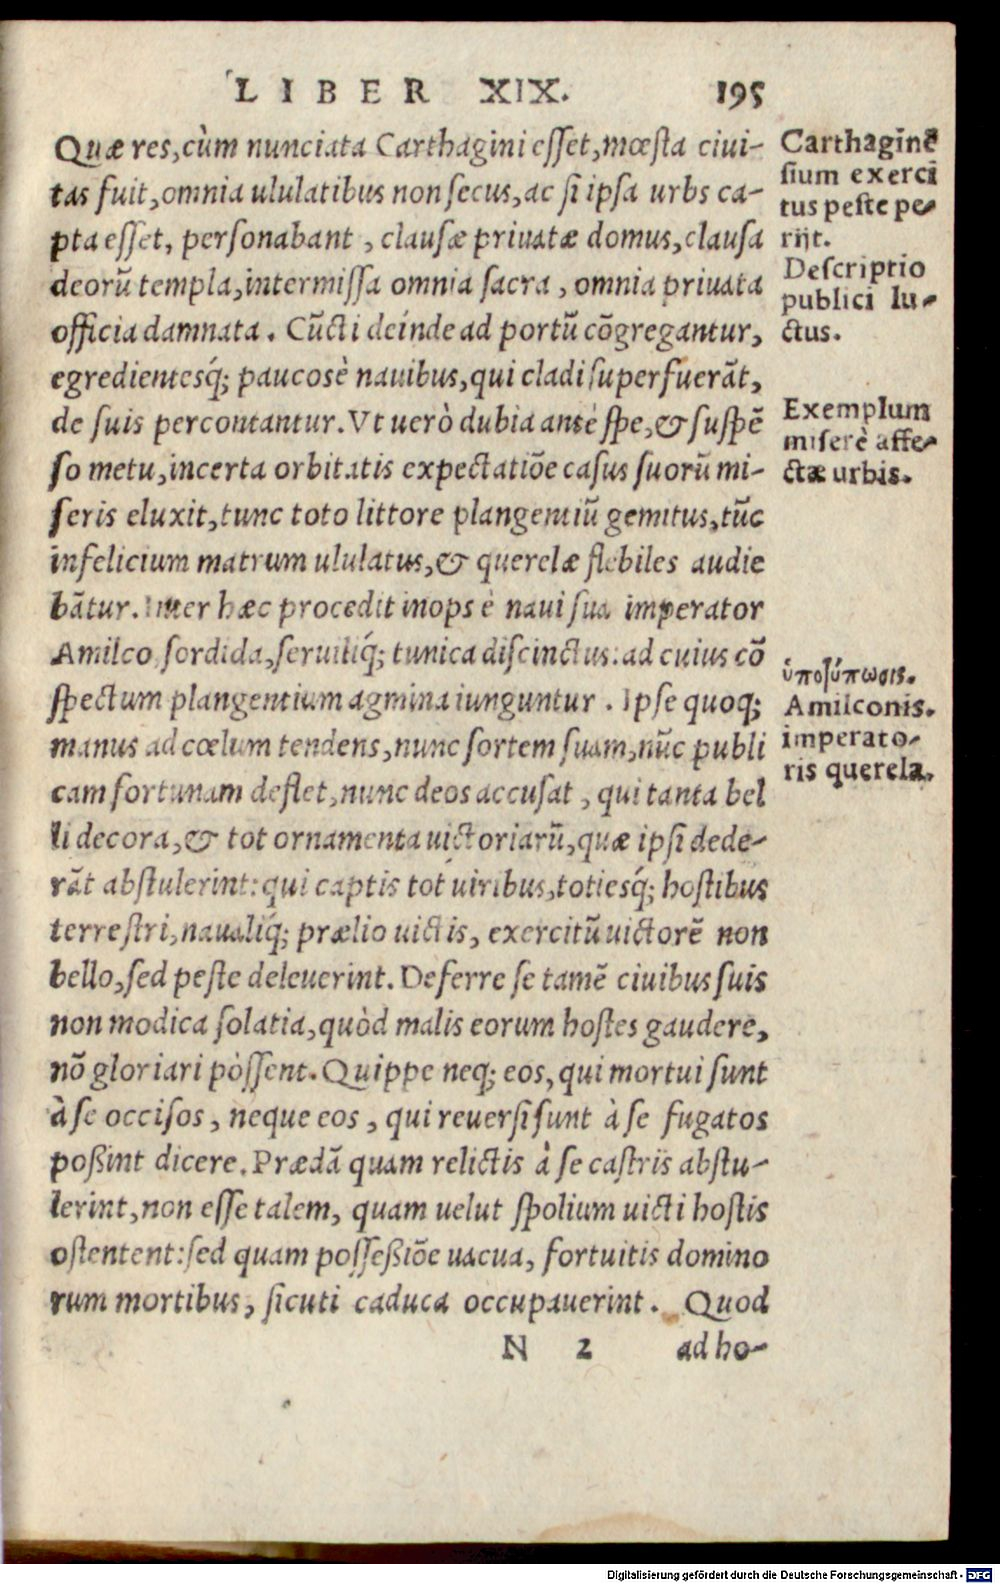 LIBER XIX. 195
Quæ res, cùm nunciata Carthagini esset, mœsta ciui-
tas fuit, omnia ululatibus non secus, ac si ipsa urbs ca-
pta esset, personabant, clausæ priuatæ domus, clausa
deorū templa, intermissa omnia sacra, omnia priuata
officia damnata. Cūcti deinde ad portū cōgregantur,
egredientesq́; paucos è nauibus, qui cladi superfuerāt,
de suis percontantur. Vt uerò dubia ante spe, & suspē
so metu, incerta orbitatis expectatiōe casus suorū mi-
seris eluxit, tunc toto littore plangentiū gemitus, tūc
infelicium matrum ululatus, & querelæ flebiles audie
bātur. Inter hæc procedit inops è naui sua imperator
Amilco sordida, seruiliq́; tunica discinctus: ad cuius cō
spectum plangentium agmina iunguntur. Ipse quoq;
manus ad cœlum tendens, nunc sortem suam, nūc publi
cam fortunam deflet, nunc deos accusat, qui tanta bel
li decora, & tot ornamenta uictoriarū, quæ ipsi dede-
rāt abstulerint: qui captis tot uiribus, totiesq́; hostibus
terrestri, naualiq́; prælio uictis, exercitū uictorē non
bello, sed peste deleuerint. Deferre se tamē ciuibus suis
non modica solatia, quòd malis eorum hostes gaudere,
nō gloriari possent. Quippe neq; eos, qui mortui sunt
à se occisos, neque eos, qui reuersi sunt à se fugatos
poßint dicere. Prædā quam relictis à se castris abstu-
lerint, non esse talem, quam uelut spolium uicti hostis
ostentent: sed quam possessiōe uacua, fortuitis domino
rum mortibus, sicuti caduca occupauerint. Quod
N 2 ad ho-
Carthaginē
sium exerci
tus peste pe-
rijt.
Descriptio
publici lu-
ctus.
Exemplum
miserè affe-
ctæ urbis.
ὑποτύπωσις.
Amilconis
imperato-
ris querela.
Digitalisierung gefördert durch die Deutsche Forschungsgemeinschaft - DFG